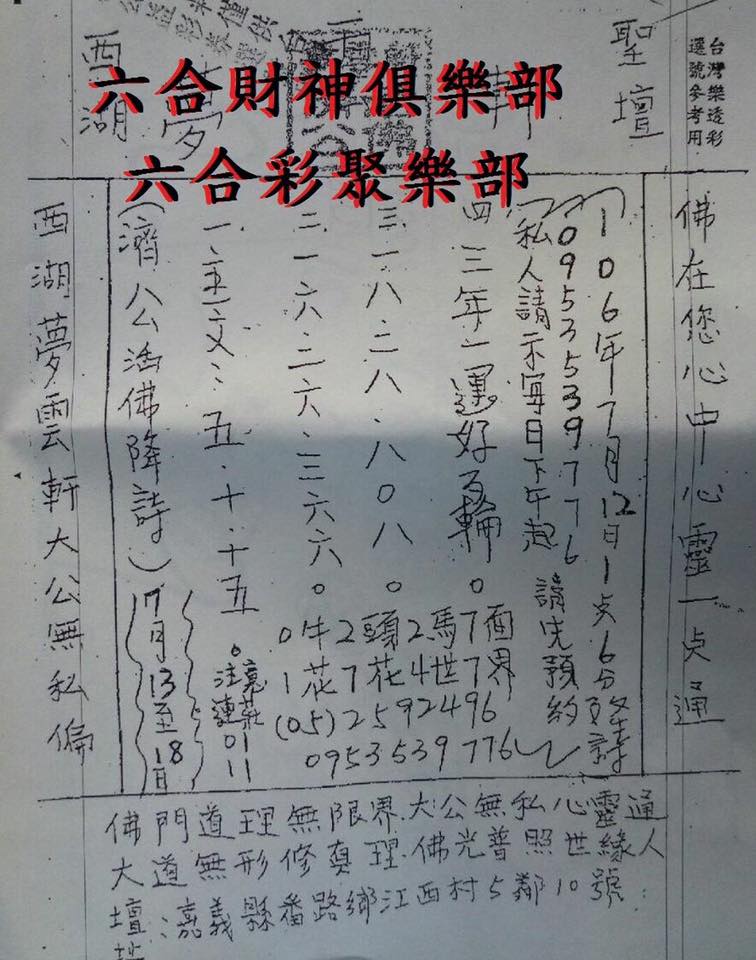 聖壇
台灣樂透彩
選號參考用
西湖
夢
軒
六合財神俱樂部
六合彩聚樂部
佛在您心中心靈一点通
(106年7月12日1点6分
0953539776
(私人請示每日下午起 請先預約)
四、三年一運好 輪。
三、一八、二八、八0八。
二、一六、二六、三六六。
一、五、五、十、十五。
0牛2頭2馬7面
1花7花4世7界
(05)2592496
0953539776
注連
01
11
(濟公活佛降詩)
7月13至18日
西湖夢雲軒大公無私偏
佛門道理無限界.大公無私心靈通
大道無形修真理.佛光普照世緣人
壇址:嘉義縣番路鄉江西村5鄰10號